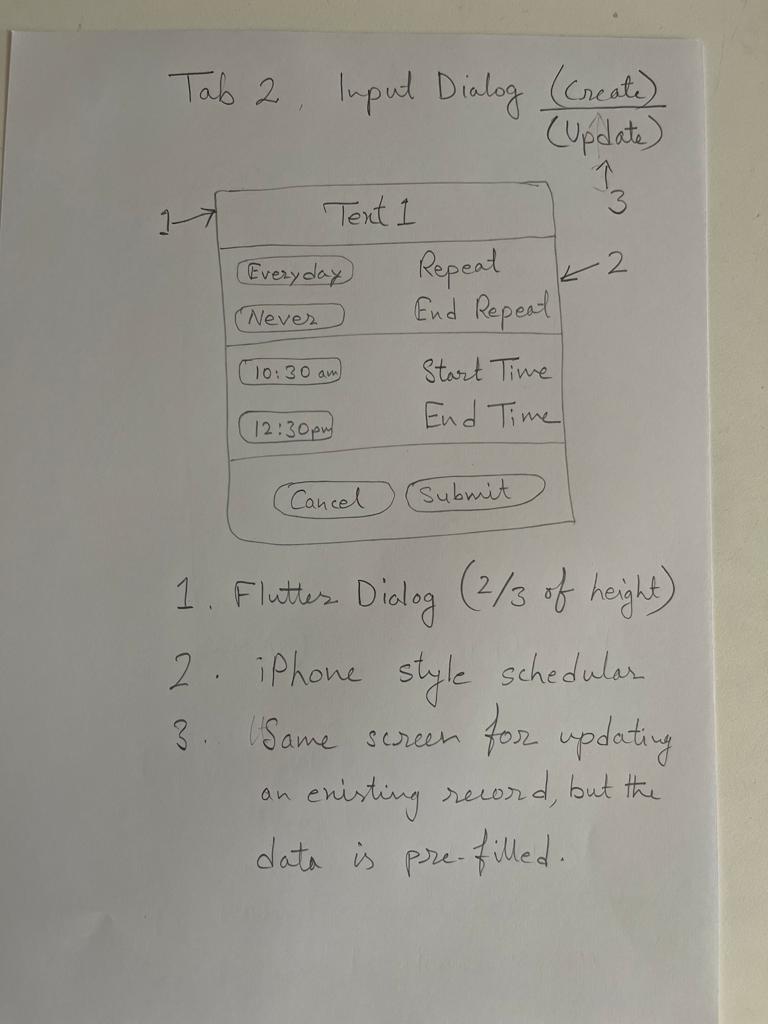 Tab 2, Input Dialog (Create)
(Update)
3
1
Text 1
2
Everyday Repeat
Never End Repeat
10:30 am Start Time
12:30pm End Time
Cancel Submit
1. Flutter Dialog (2/3 of height)
2. iPhone style schedular
3. Same screen for updating
an existing record, but the
data is pre-filled.